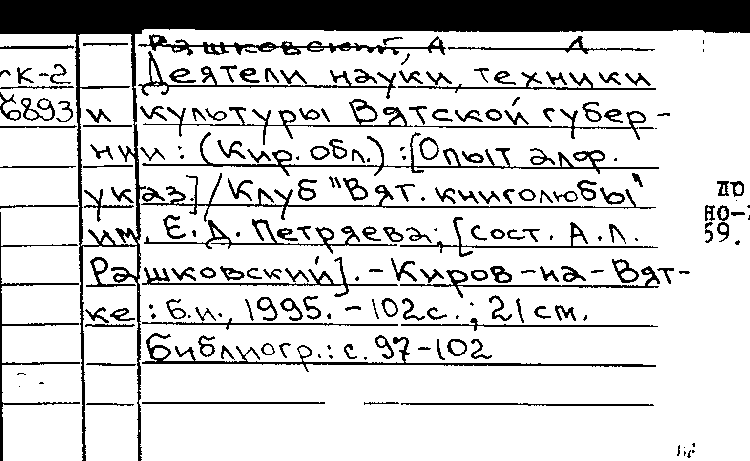 Рашковский, А Л
гк-2 Деятели науки, техники
6893 и культуры Вятской губер-
нии : (Кир. обл.) : [Опыт алф.
указ.] / Клуб "Вят. книголюбы"
им. Е. Д. Петряева; [сост. А.Л.
Рашковский]. - Киров-на-Вят-
ке : б.и., 1995. - 102 с. ; 21 см.
Библиогр.: с. 97-102
по
но-
59.